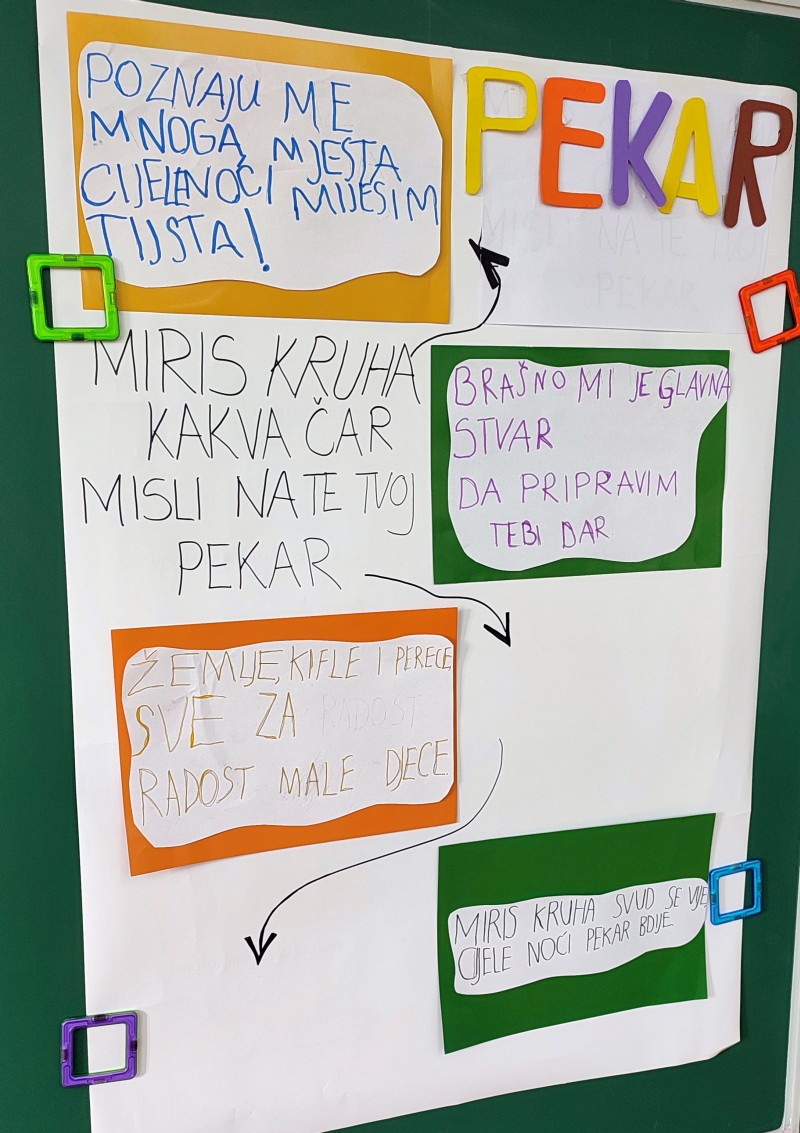 PEKAR
POZNAJU ME
MNOGA MJESTA
CIJELE NOĆI MIJESIM
TIJSTA!
MIRIS KRUHA
KAKVA ČAR
MISLI NA TE TVOJ
PEKAR
BRAŠNO MI JE GLAVNA
STVAR
DA PRIPRAVIM
TEBI DAR
ŽEMLJE, KIFLE I PERECE,
SVE ZA RADOST
RADOST MALE DJECE.
MIRIS KRUHA SVUD SE VIJE,
CIJELE NOĆI PEKAR BDIJE.
MISLI NA TE TVOJ
PEKAR